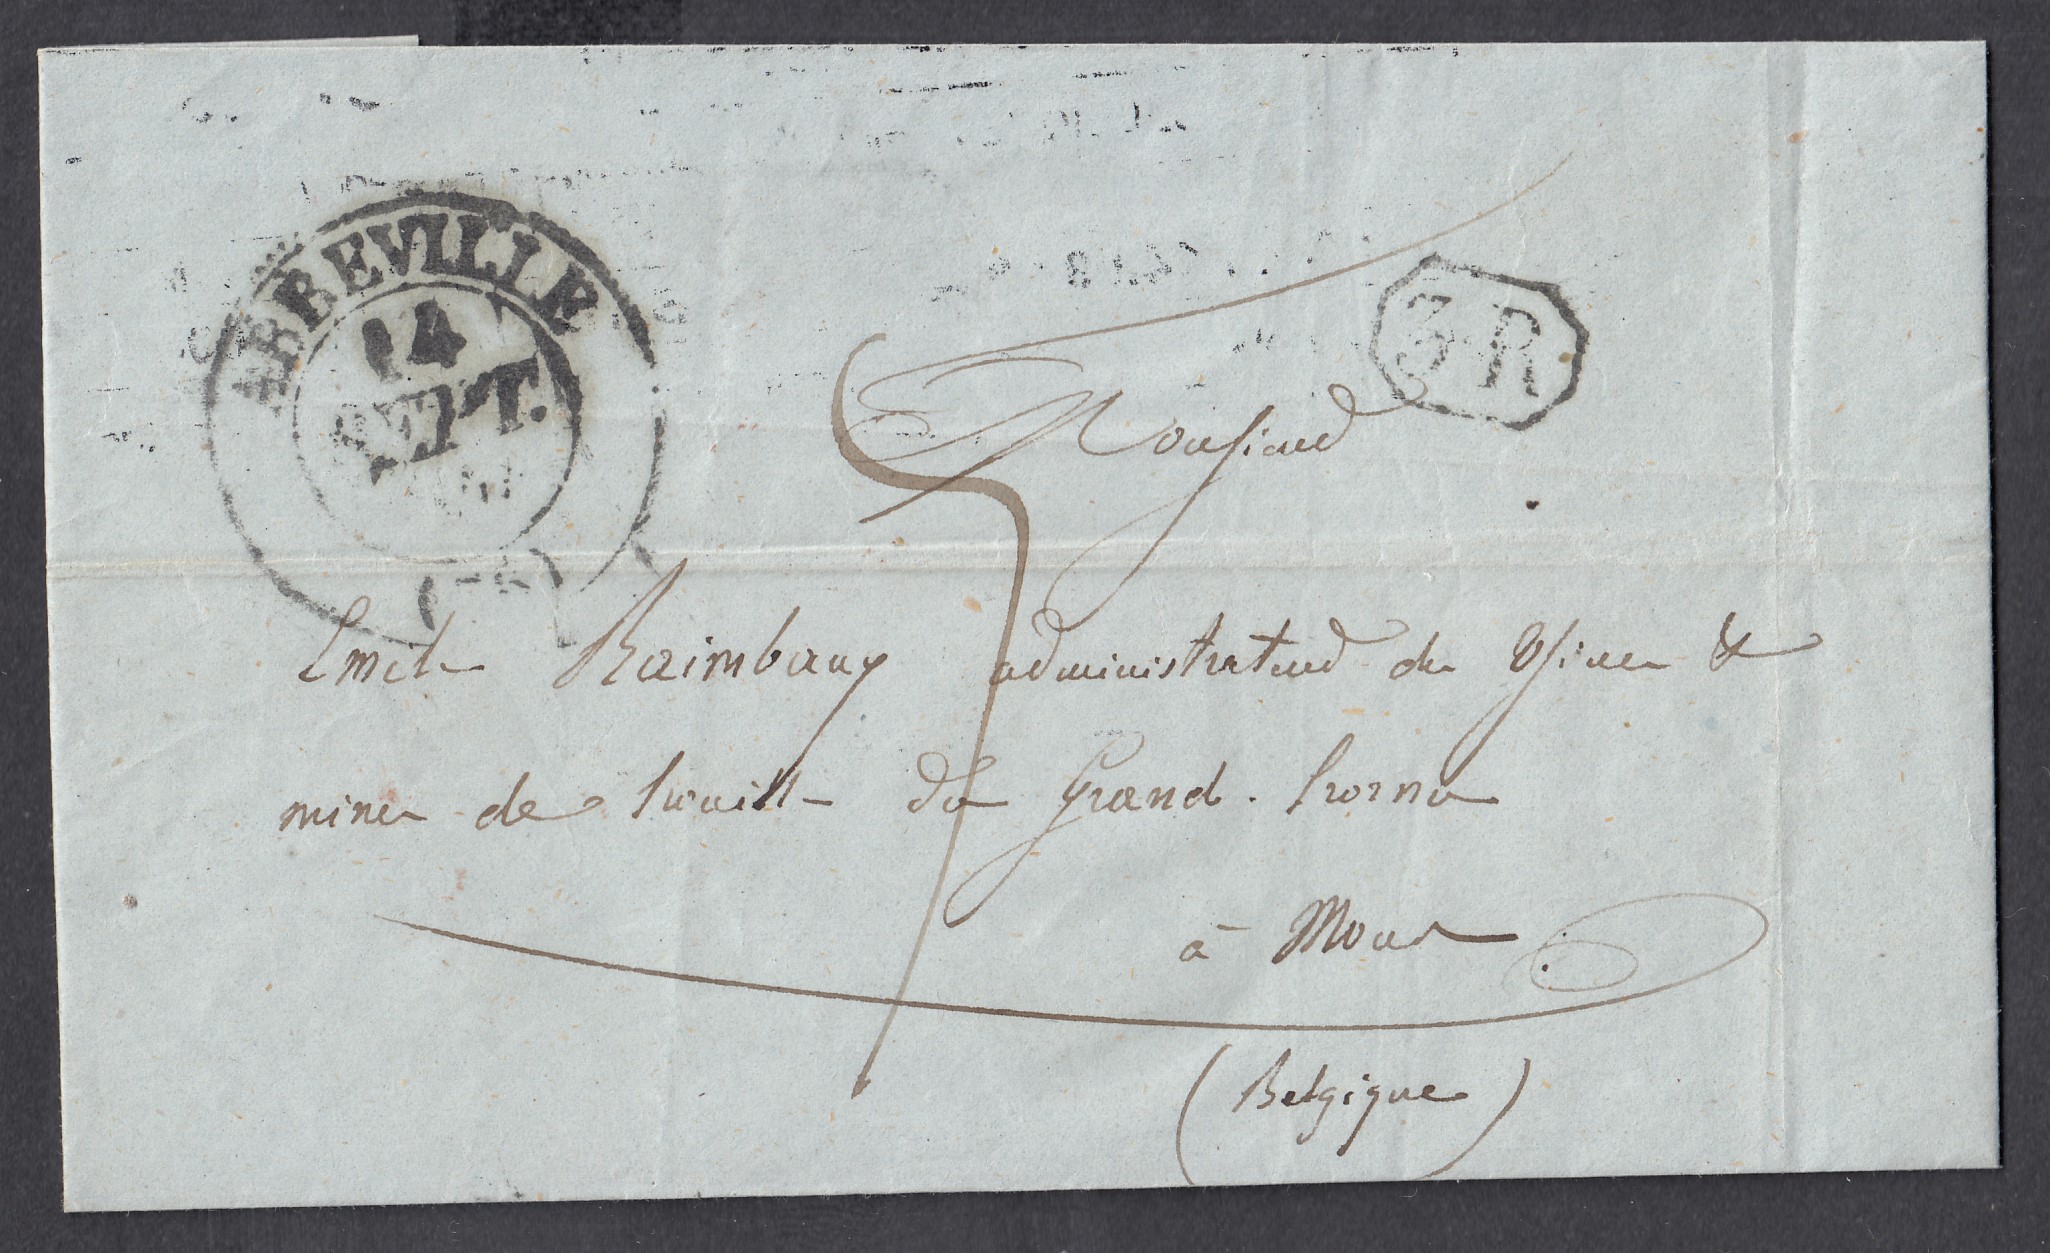 ABBEVILLE
14
SEPT.
3·R
Monsieur
Emile Raimbaux administrateur des Usines &
mines de houille du Grand-hornu
à Mons
(Belgique)